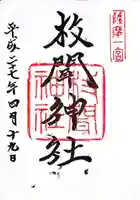 薩摩一宮
枚聞神社
平成二十七年四月十九日